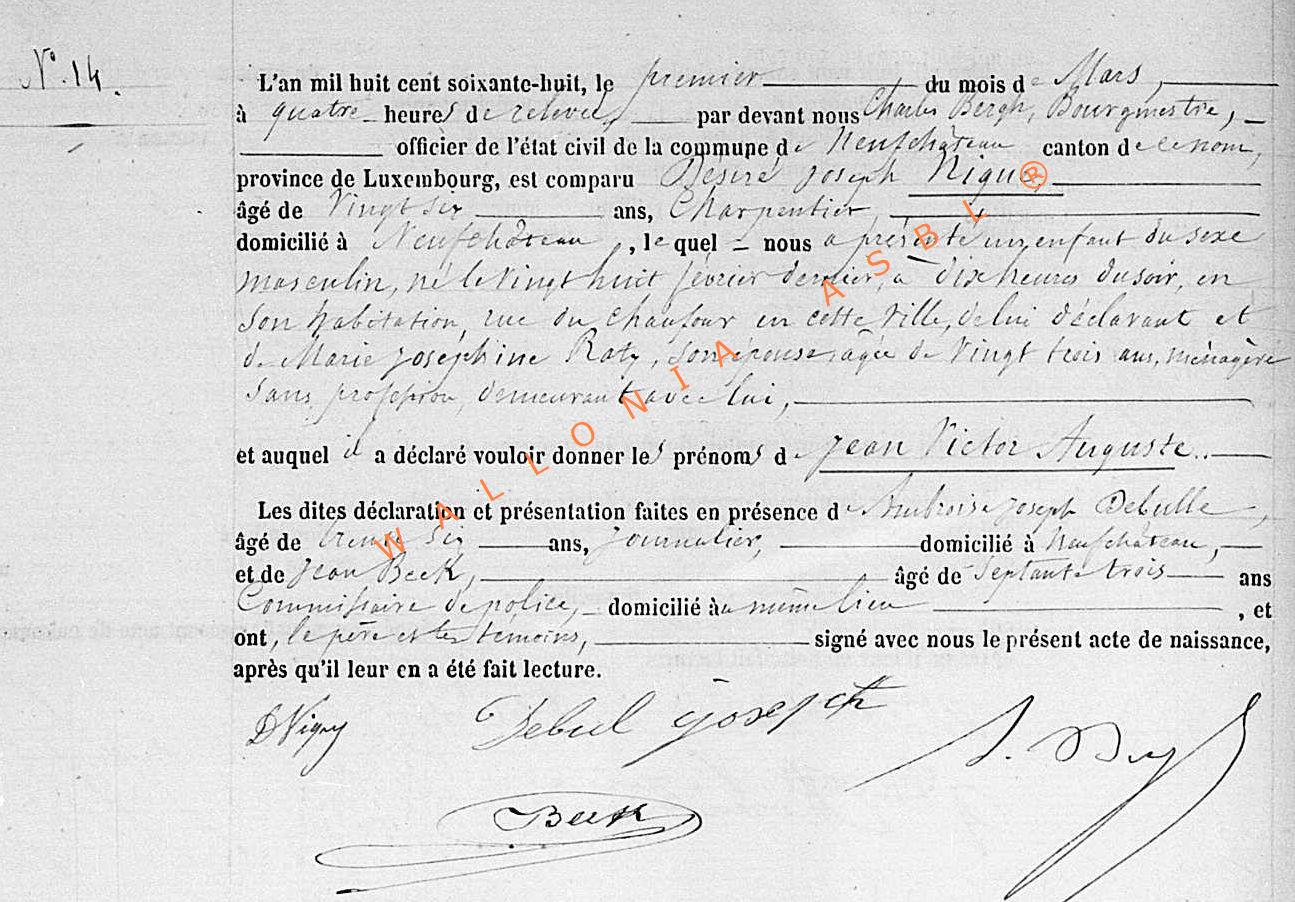 N° 14.
L'an mil huit cent soixante-huit, le premier du mois de Mars,
à quatre heures de relevée, par devant nous Charles Bergh, Bourgmestre,
officier de l'état civil de la commune de Neufchâteau canton de ce nom,
province de Luxembourg, est comparu Désiré Joseph Nigue,
âgé de Vingt six ans, Charpentier,
domicilié à Neufchâteau, lequel nous a présenté un enfant du sexe
masculin, né le Vingt huit février dernier, à dix heures du soir, en
son habitation, rue du Chaufour en cette Ville, de lui déclarant et
de Marie Joséphine Raty, son épouse, agée de Vingt trois ans, ménagère
sans profession, demeurant avec lui,
et auquel il a déclaré vouloir donner les prénoms de Jean Victor Auguste.
Les dites déclaration et présentation faites en présence de Ambroise Joseph Debulle,
âgé de trente six ans, Journalier, domicilié à Neufchâteau,
et de Jean Beck, âgé de Septante trois ans
Commissaire de police, domicilié au même lieu, et
ont, le père et les témoins, signé avec nous le présent acte de naissance,
après qu'il leur en a été fait lecture.
D Nigny Debul joseph
Beck
WALLONIA ASBL ®